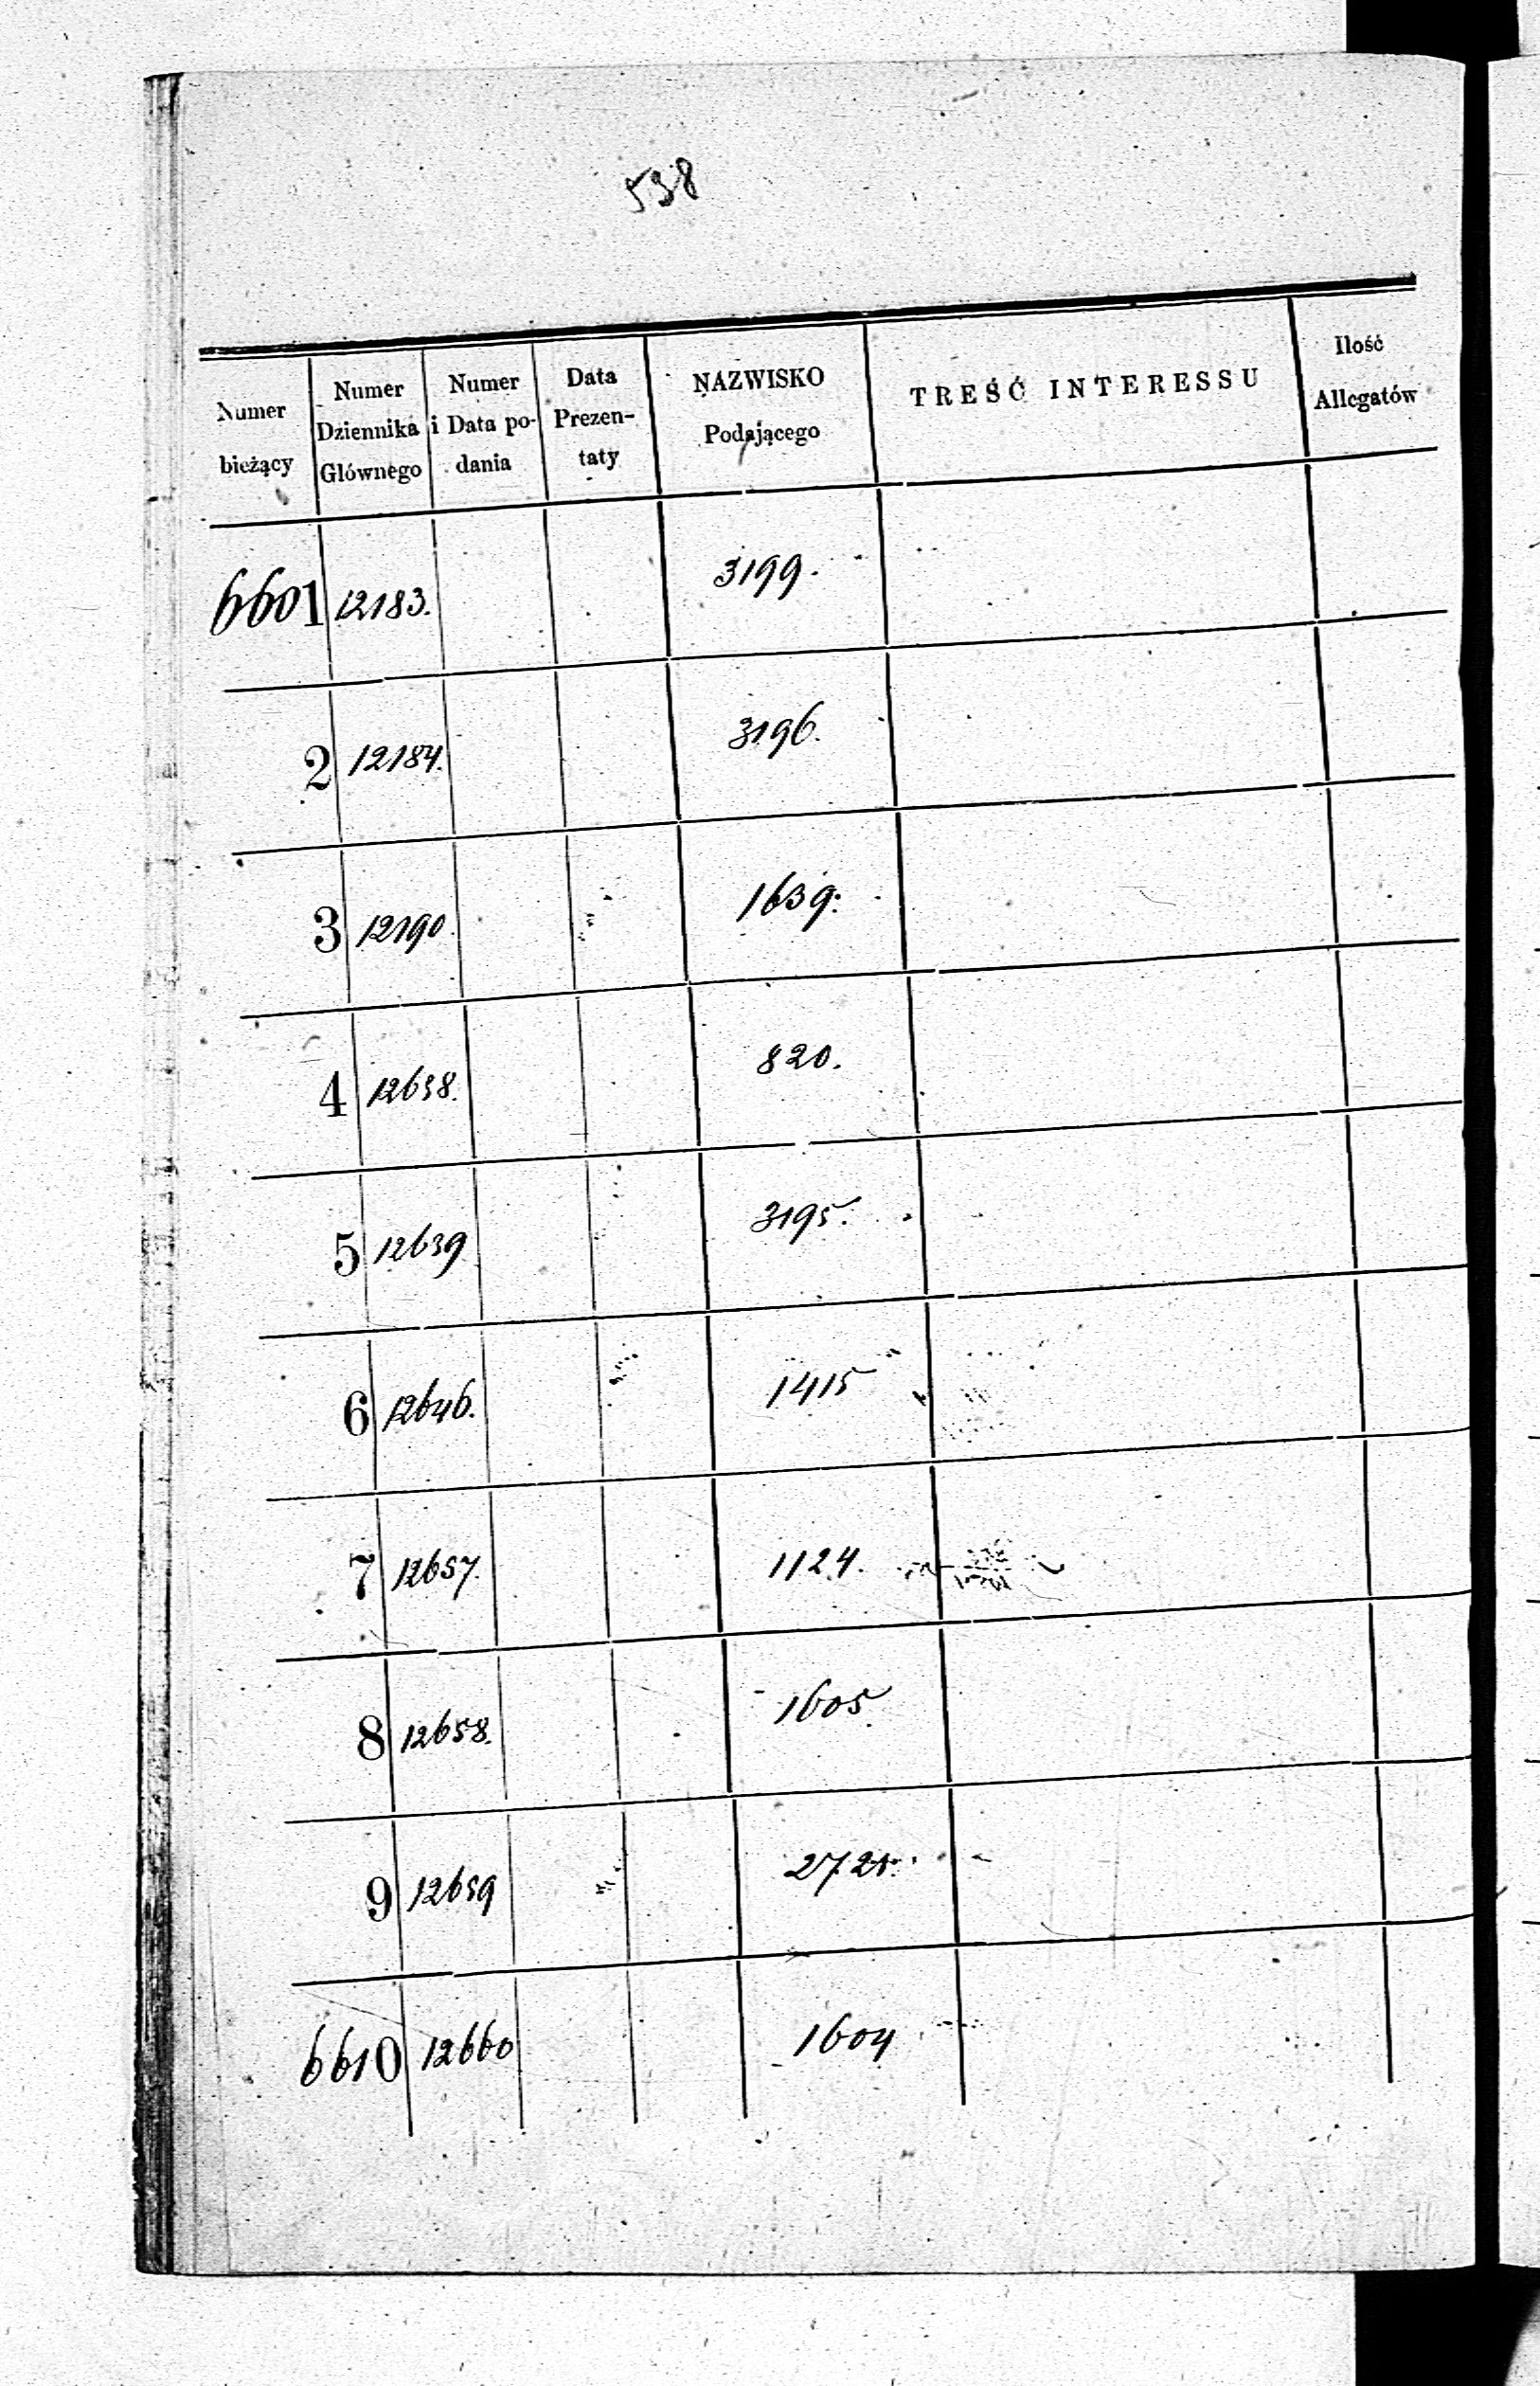 538
Numer bieżący | Numer Dziennika Głównego | Numer i Data podania | Data Prezentaty | NAZWISKO Podającego | TREŚĆ INTERESSU | Ilość Allegatów
6601 12183. 3199.
2 12184. 3196.
3 12190. 1639.
4 12638. 820.
5 12639 3195.
6 12646. 1415
7 12657. 1124.
8 12658. 1605.
9 12659
6610 12660 1604